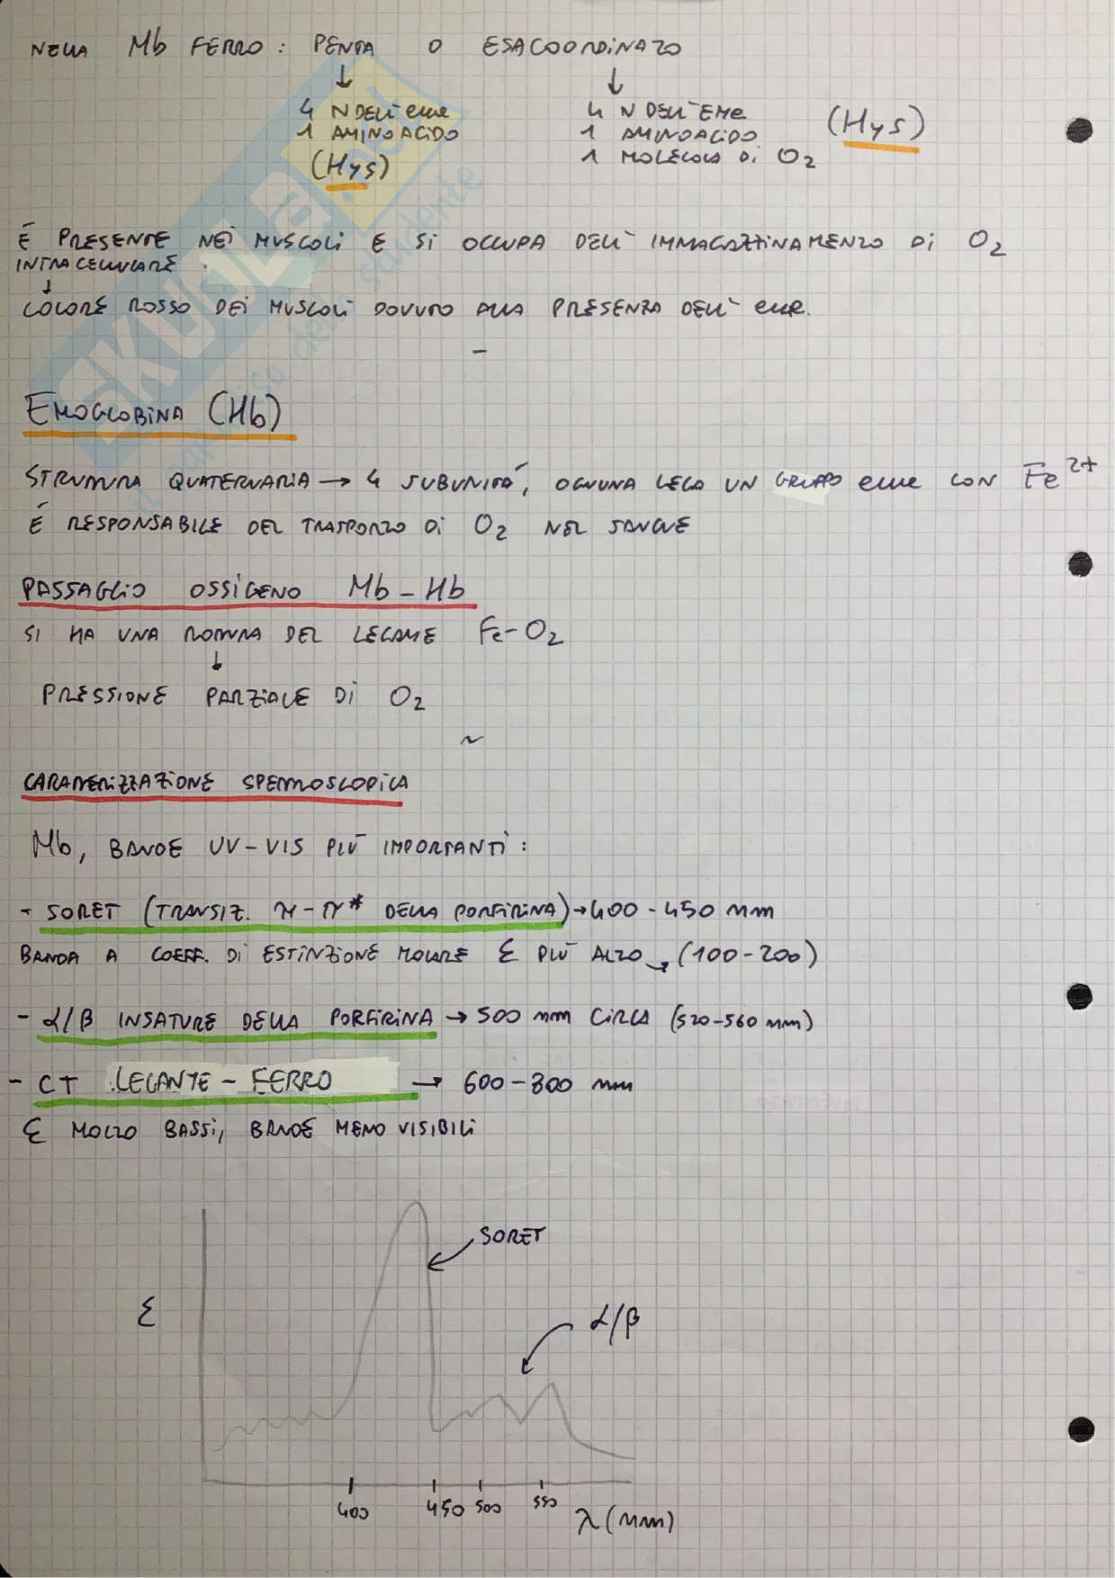 NELLA Mb FERRO: PENTA O ESACOORDINATO
4 N DELL'eme
1 AMINOACIDO
(Hys)
4 N DELL'EMe
1 AMINOACIDO
1 MOLECOLA Di O2
(Hys)
É PRESENTE NEI MUSCOLI E SI OCCUPA DELL'IMMAGAZZINAMENTO Di O2
INTRACELLULARE.
COLORE ROSSO DEI MUSCOLI DOVUTO ALLA PRESENZA DELL'eme.
-
EMOGLOBINA (Hb)
STRUTTURA QUATERNARIA → 4 SUBUNITÁ, OGNUNA LEGA UN GRUPPO eme CON Fe2+
É RESPONSABILE DEL TRASPORTO Di O2 NEL SANGUE
PASSAGGIO OSSIGENO Mb-Hb
SI HA UNA ROTTURA DEL LEGAME Fe-O2
PRESSIONE PARZIALE DI O2
~
CARATTERIZZAZIONE SPETTROSCOPICA
Mb, BANDE UV-VIS PIÚ IMPORTANTI:
- SORET (TRANSIZ. π-π* DELLA PORFIRINA) → 400-450 nm
BANDA A COEFF. Di ESTINZIONE MOLARE ε PIÚ ALTO → (100-200)
- α/β INSATURE DELLA PORFIRINA → 500 nm CIRCA (520-560 nm)
- CT LEGANTE-FERRO → 600-800 nm
ε MOLTO BASSI, BANDE MENO VISIBILI
SORET
ε
α/β
400 450 500 550
λ(nm)
SKUOLA.net